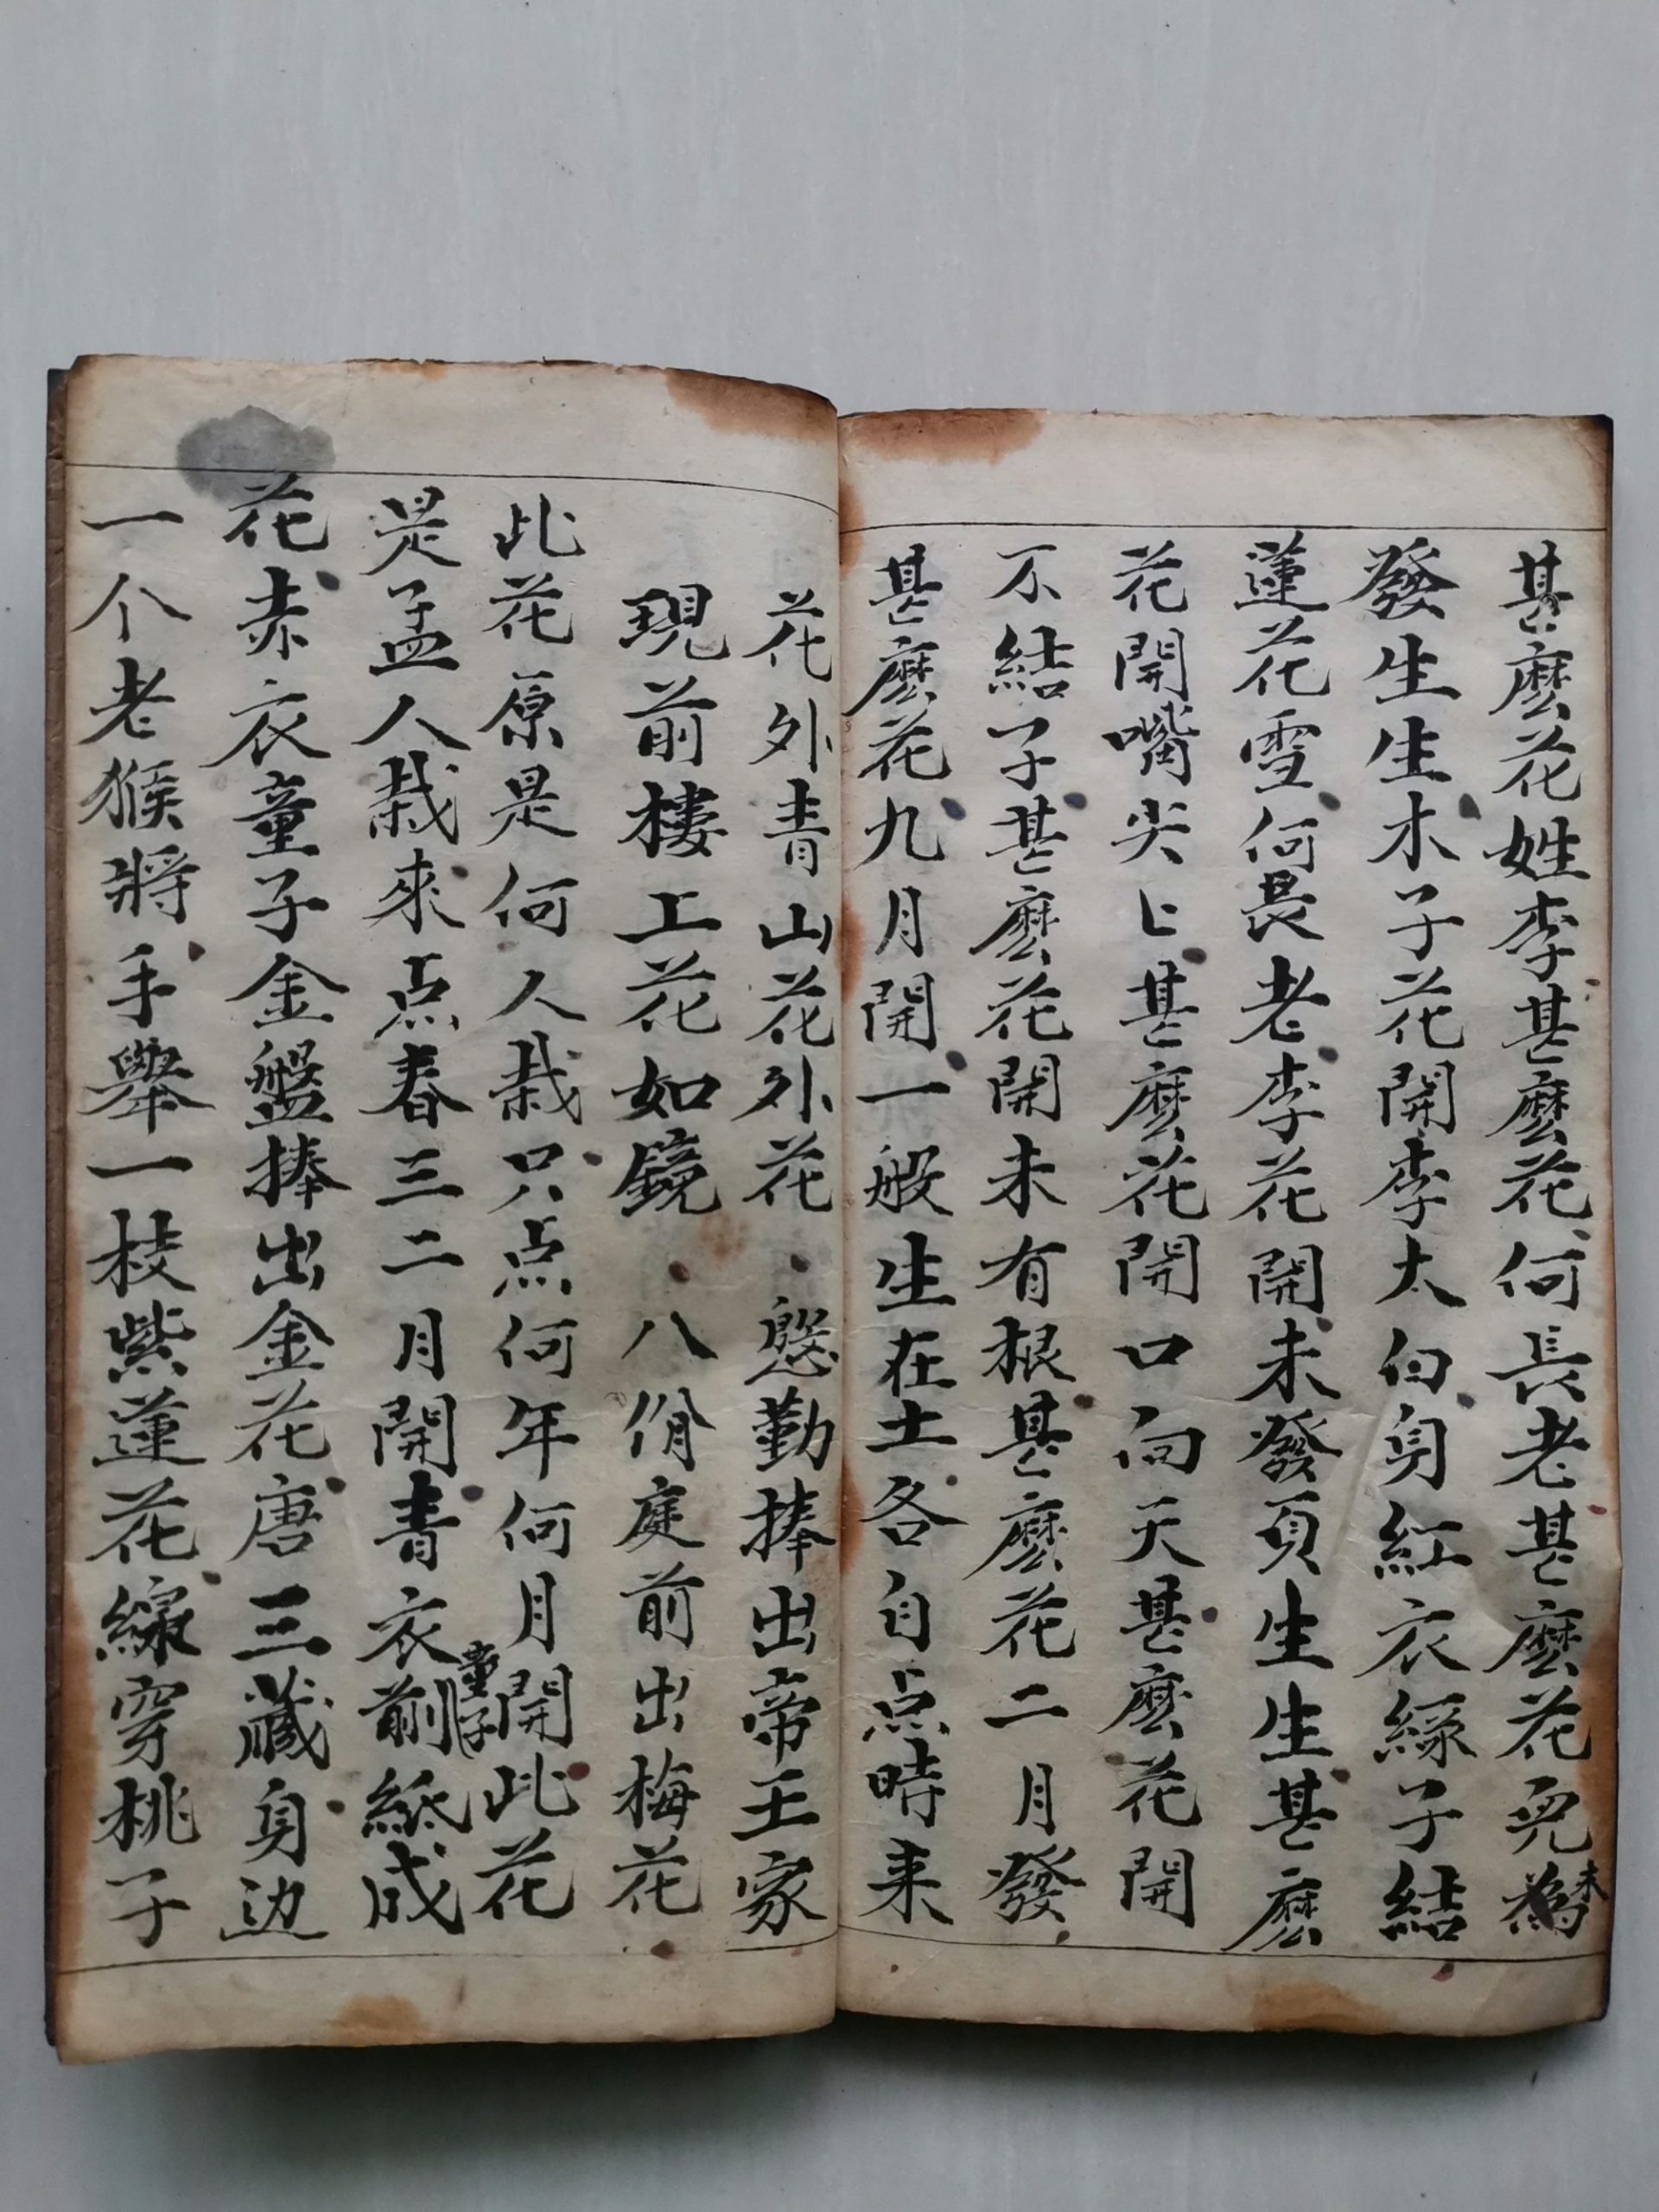 甚麼花姓李甚麼花何長老甚麼花兒為未
發生生木子花開李太白身紅衣緑子結
蓮花雪何畏老李花開未發頁生生甚麼
花開嘴尖匕甚麼花開口向天甚麼花開
不結子甚麼花開未有根甚麼花二月發
甚麼花九月開一般生在土各自点時来
花外青山花外花 慇勤捧出帝王家
現前樓上花如鏡 八佾庭前出梅花
此花原是何人栽只点何年何月開此花
是孟人栽來点春三二月開青衣童子前紙成
花赤衣童子金盤捧出金花唐三藏身边
一个老猴將手舉一枝紫蓮花線穿桃子